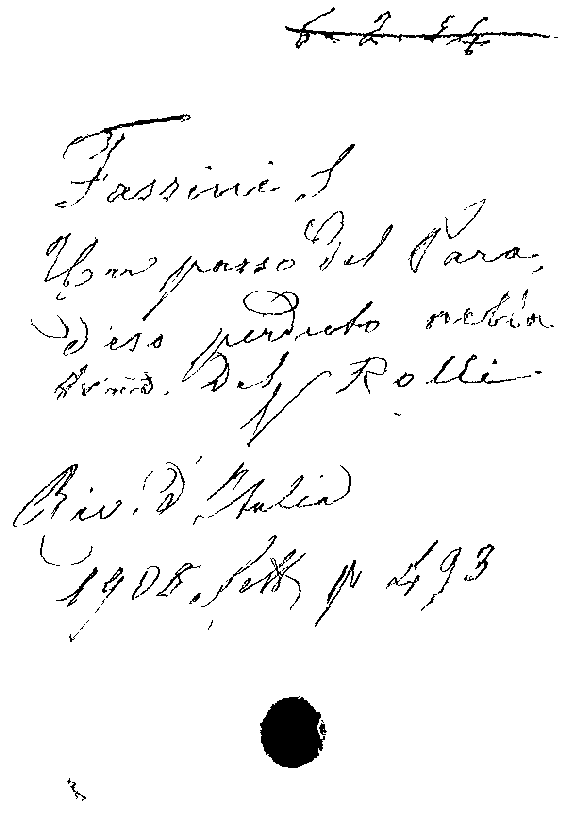 6. 2. 14
Fassini S
Un passo del Para
diso perduto nella
trad. Del Rolli
Riv. d'Italia
1908. Sett p 493